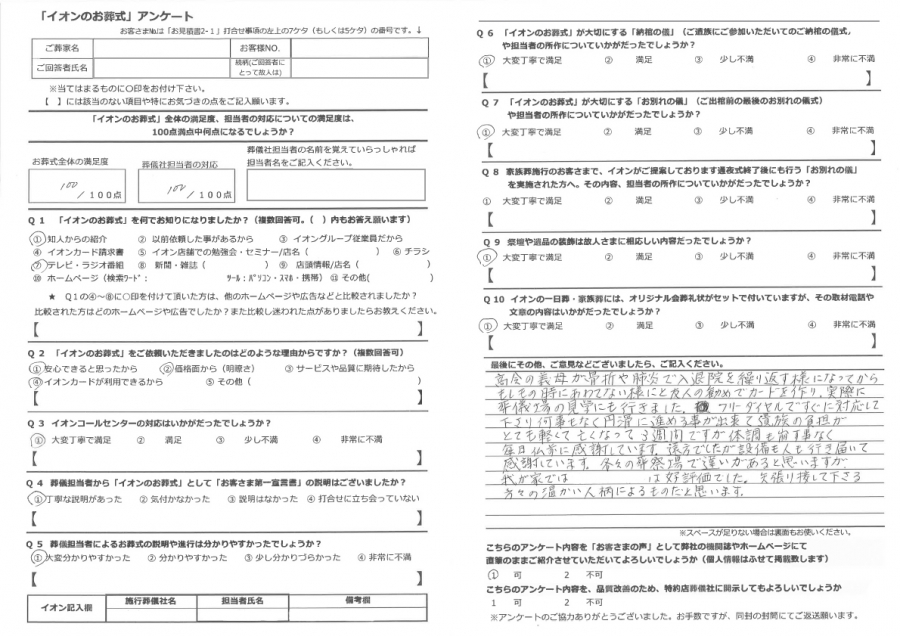 「イオンのお葬式」アンケート
お客さまNo.は「お見積書2-1」打合せ事項の左上の7ケタ（もしくは5ケタ）の番号です。↓
ご葬家名 お客様NO.
ご回答者氏名 続柄(ご回答者にとって故人は)
※当てはまるものに〇印をお付け下さい。
【　】には該当のない項目や特にお気づきの点をご記入願います。
「イオンのお葬式」全体の満足度、担当者の対応についての満足度は、
100点満点中何点になるでしょうか？
お葬式全体の満足度 葬儀社担当者の対応 葬儀社担当者の名前を覚えていらっしゃれば
担当者名をご記入ください。
100 /100点 100 /100点
Q 1 「イオンのお葬式」を何でお知りになりましたか？（複数回答可。(　) 内もお答え願います）
① 知人からの紹介 ② 以前依頼した事があるから ③ イオングループ従業員だから
④ イオンカード請求書 ⑤ イオン店舗での勉強会・セミナー/店名（　） ⑥ チラシ
⑦ テレビ・ラジオ番組 ⑧ 新聞・雑誌（　） ⑨ 店頭情報/店名（　）
⑩ ホームページ（検索ワード：　ツール：パソコン・スマホ・携帯） ⑪ その他(　)
★ Q1の④～⑧に〇印を付けて頂いた方は、他のホームページや広告などと比較されましたか？
比較された方はどのホームページや広告でしたか？また比較し迷われた点がありましたらお教えください。
【　】
Q 2 「イオンのお葬式」をご依頼いただきましたのはどのような理由からですか？（複数回答可）
① 安心できると思ったから ② 価格面から（明瞭さ） ③ サービスや品質に期待したから
④ イオンカードが利用できるから ⑤ その他（　）
【　】
Q 3 イオンコールセンターの対応はいかがだったでしょうか？
① 大変丁寧で満足 ② 満足 ③ 少し不満 ④ 非常に不満
【　】
Q 4 葬儀担当者から「イオンのお葬式」として「お客さま第一宣言書」の説明はございましたか？
① 丁寧な説明があった ② 気付かなかった ③ 説明はなかった ④ 打合せに立ち会っていない
【　】
Q 5 葬儀担当者によるお葬式の説明や進行は分かりやすかったでしょうか？
① 大変分かりやすかった ② 分かりやすかった ③ 少し分かりづらかった ④ 非常に不満
【　】
イオン記入欄 施行葬儀社名 担当者氏名 備考欄
Q 6 「イオンのお葬式」が大切にする「納棺の儀」（ご遺族にご参加いただいてのご納棺の儀式）
や担当者の所作についていかがだったでしょうか？
① 大変丁寧で満足 ② 満足 ③ 少し不満 ④ 非常に不満
【　】
Q 7 「イオンのお葬式」が大切にする「お別れの儀」（ご出棺前の最後のお別れの儀式）
や担当者の所作についていかがだったでしょうか？
① 大変丁寧で満足 ② 満足 ③ 少し不満 ④ 非常に不満
【　】
Q 8 家族葬施行のお客さまで、イオンがご提案しております通夜式終了後にも行う「お別れの儀」
を実施された方へ。その内容、担当者の所作についていかがだったでしょうか？
① 大変丁寧で満足 ② 満足 ③ 少し不満 ④ 非常に不満
【　】
Q 9 祭壇や遺品の装飾は故人さまに相応しい内容だったでしょうか？
① 大変丁寧で満足 ② 満足 ③ 少し不満 ④ 非常に不満
【　】
Q 10 イオンの一日葬・家族葬には、オリジナル会葬礼状がセットで付いていますが、その取材電話や
文章の内容はいかがだったでしょうか？
① 大変丁寧で満足 ② 満足 ③ 少し不満 ④ 非常に不満
【　】
最後にその他、ご意見などございましたら、ご記入ください。
高令の義母が骨折や肺炎で入退院を繰り返す様になってから
もしもの時にあわてない様にと友人の勧めでカードを作り、実際に
葬儀場の見学にも行きました。フリーダイヤルですぐに対応して
下さり何事もなく円滑に進める事が出来て遺族の負担が
とても軽くて 亡くなって3週間ですが体調も崩す事なく
毎日仏前に感謝しています。遠方でしたが設備も人も行き届いて
感謝しています。各々の葬祭場で違いがあると思いますが
我が家では　　は好評価でした。矢張り接して下さる
方々の温かい人柄によるものだと思います。
※スペースが足りない場合は裏面もお使いください。
こちらのアンケート内容を「お客さまの声」として弊社の機関誌やホームページにて
直筆のままご紹介させていただいてよろしいでしょうか（個人情報はふせて掲載致します）
① 可 2 不可
こちらのアンケート内容を、品質改善のため、特約店葬儀社に開示してもよろしいでしょうか
1 可 2 不可
※アンケートのご協力ありがとうございました。お手数ですが、同封の封筒にてご返送願います。